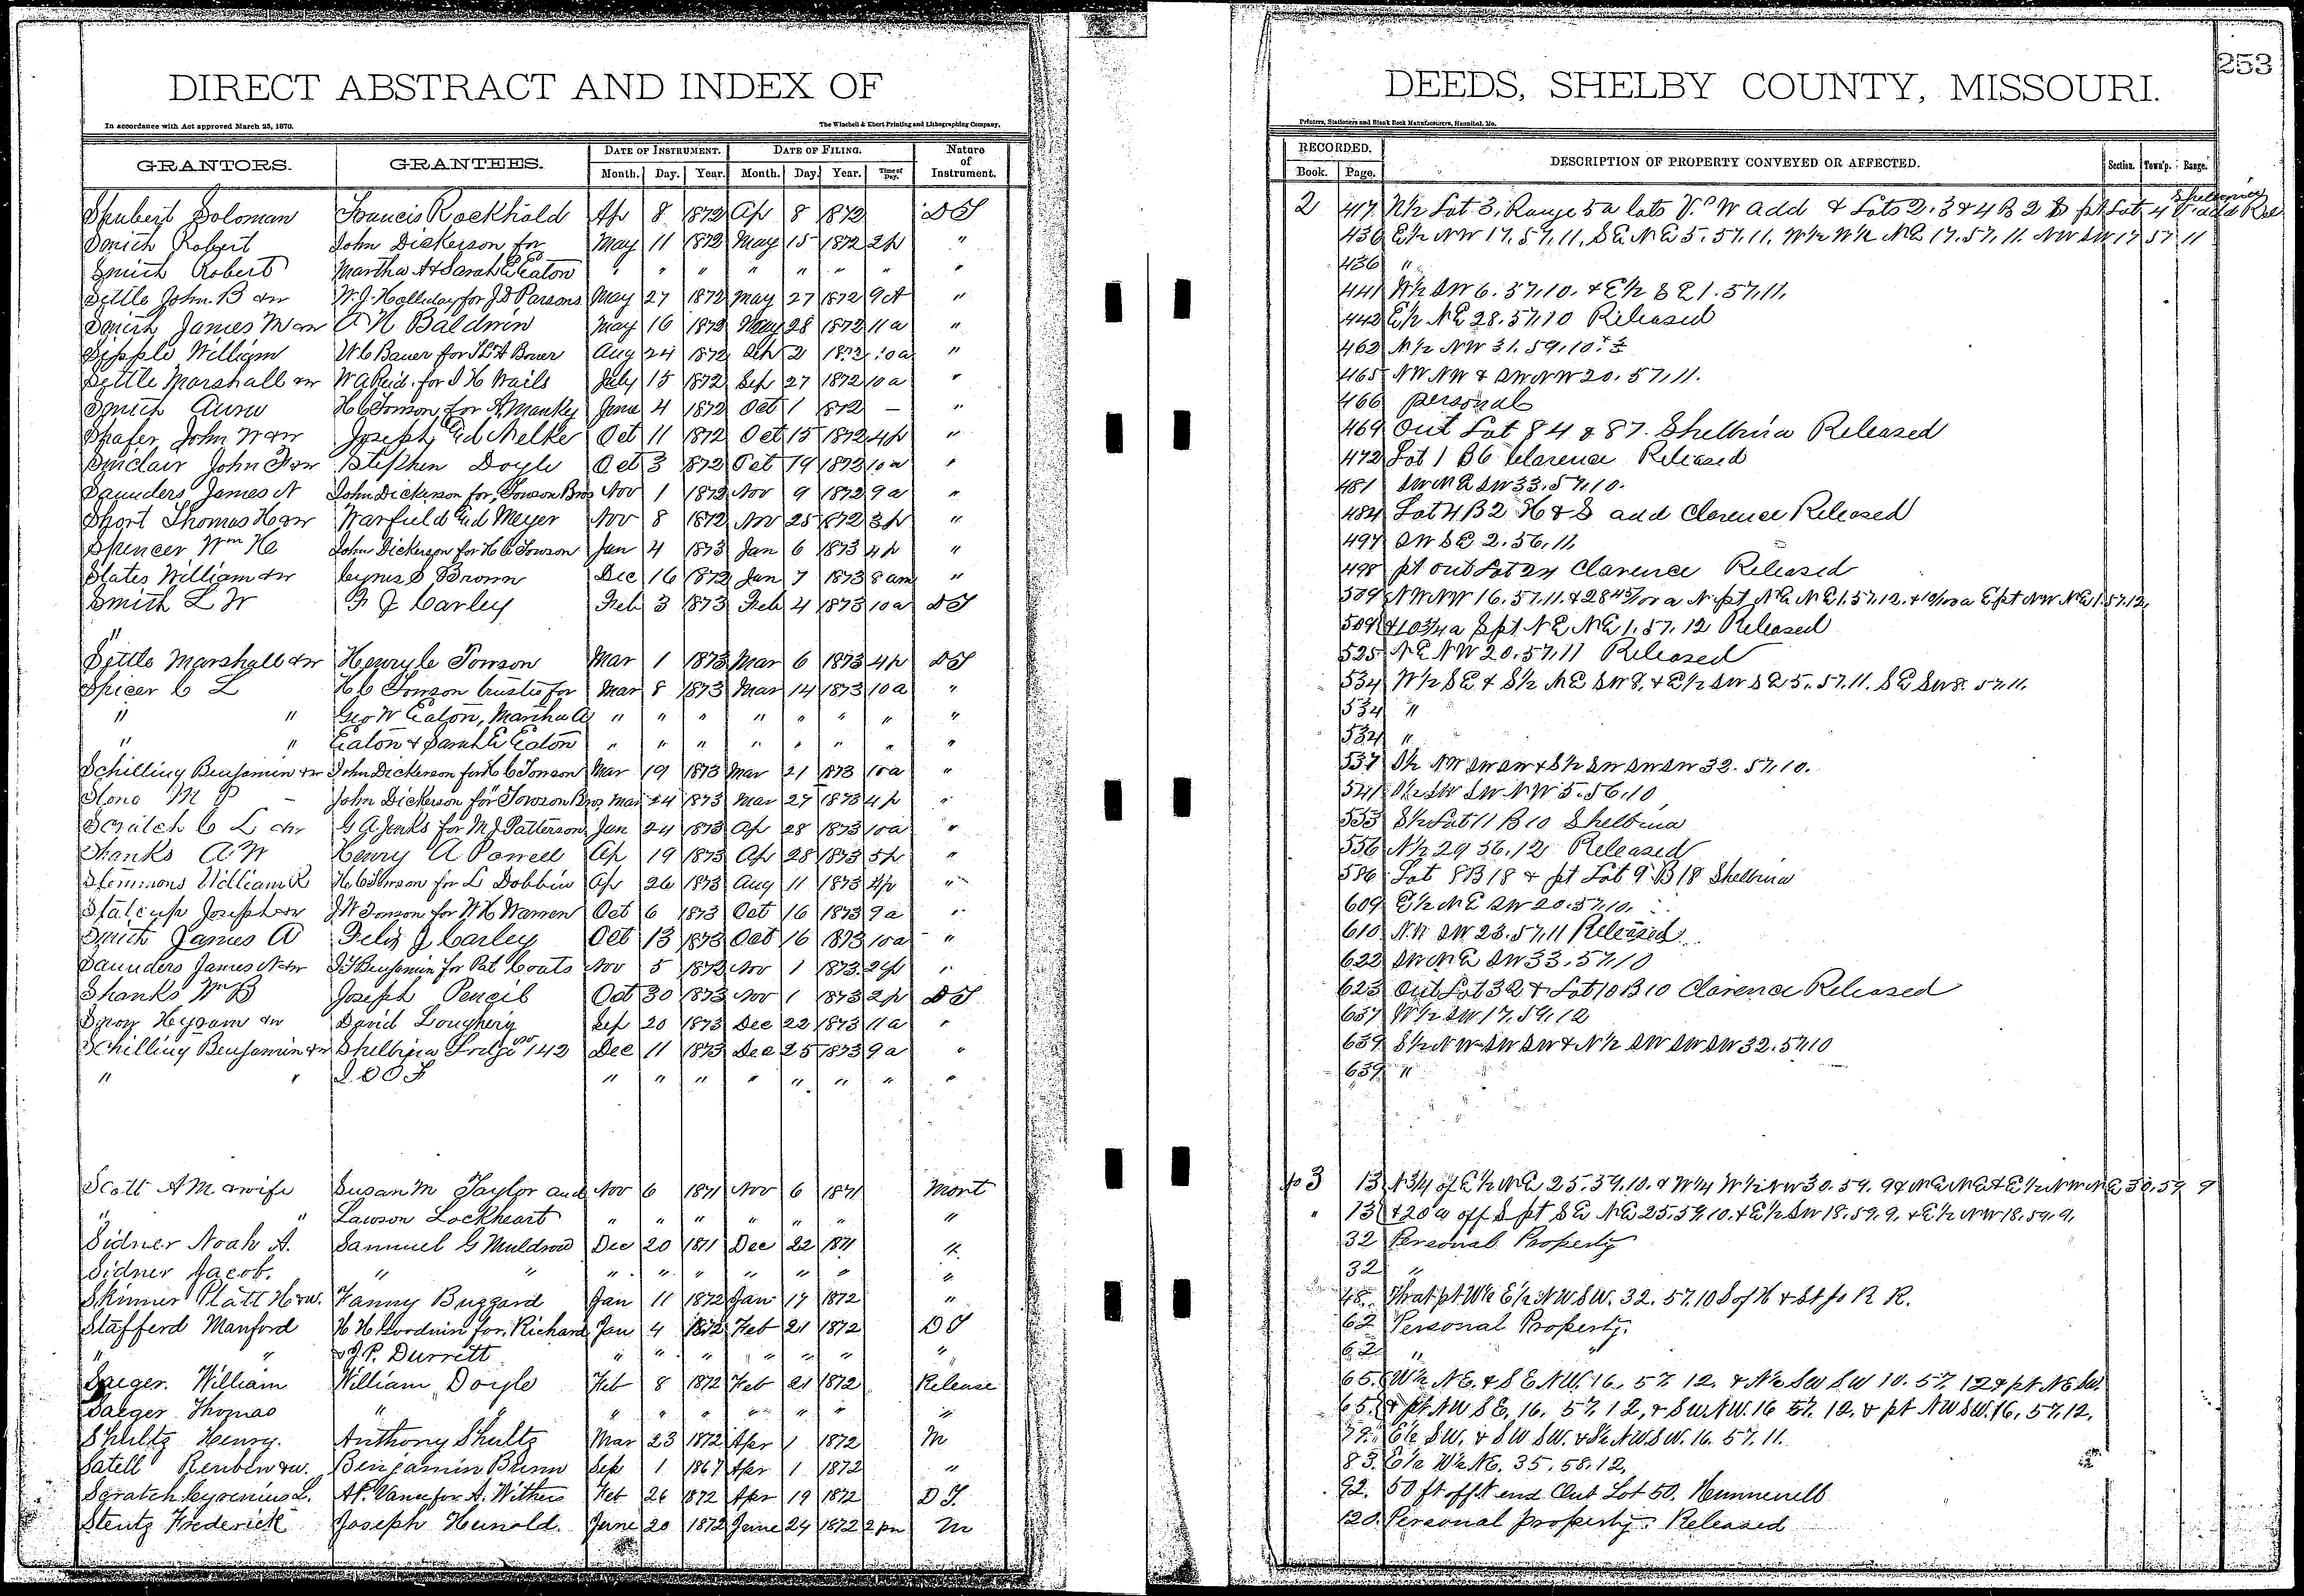 253
DIRECT ABSTRACT AND INDEX OF DEEDS, SHELBY COUNTY, MISSOURI.
In accordance with Act approved March 25, 1870. The Winchell & Ebert Printing and Lithographing Company, Printers, Stationers and Blank Book Manufacturers, Hannibal, Mo.
GRANTORS. GRANTEES. DATE OF INSTRUMENT. DATE OF FILING. Nature of Instrument. RECORDED. DESCRIPTION OF PROPERTY CONVEYED OR AFFECTED. Section. Town'p. Range.
Month. Day. Year. Month. Day. Year. Time of Day. Book. Page.
Shubert Soloman Francis Rockhold Ap 8 1872 Ap 8 1872 DT 2 417 N½ Lot 3, Range 5 a lots V. W add & Lots 2.3 & 4 B 2 pt Lot 4 add Rel
Smith Robert John Dickerson for May 11 1872 May 15 1872 2p " 436 E½ NW 17.57.11. SE NE 5.57.11. W½ W½ NE 17.57.11. NW SW 17 57 11
Smith Robert Martha A & Sarah E Eaton " " " " " " " " 436 "
Settle John B &w W. J. Holliday for J D Parsons May 27 1872 May 27 1872 9A " 441 W½ SW 6.57.10. & E½ SE 1.57.11.
Smith James M &w A N Baldwin May 16 1872 May 28 1872 11a " 442 E½ NE 28.57.10 Released
Sipple William W C Bauer for Aug 24 1872 2 1872 10a " 462 N½ NW 31.59.10
Settle Marshall &w W A Reid for S H Wails July 15 1872 Sep 27 1872 10a " 465 NW NW & SW NW 20.57.11.
Smith H C Towson for A Manky June 4 1872 Oct 1 1872 — " 466 personal
Shafer John W &w Joseph Ed Melker Oct 11 1872 Oct 15 1872 4p " 469 Out Lot 84 & 87. Shelbina Released
Sinclair John F &w Stephen Doyle Oct 3 1872 Oct 19 1872 10a " 472 Lot 1 B6 Clarence Released
Saunders James N John Dickerson for Towson Bros Nov 1 1872 Nov 9 1872 9a " 481 SW NE SW 33.57.10.
Short Thomas H &w Warfield Ed Meyer Nov 8 1872 Nov 25 1872 3p " 484 Lot 4 B2 H & S add Clarence Released
Spencer Wm H John Dickerson for H C Towson Jan 4 1873 Jan 6 1873 4p " 497 SW SE 2.56.11.
States William &w Cyrus S Brown Dec 16 1872 Jan 7 1873 8am " 498 pt out Lot 24 Clarence Released
Smith L W F J Carley Feb 3 1873 Feb 4 1873 10a DT 509 NW NW 16.57.11. & 28 45/100 a N pt NE NE 1.57.12. & a E pt NW NE 1.57.12.
" 509 & 10¾ a S pt NE NE 1.57.12 Released
Settle Marshall &w Henry C Towson Mar 1 1873 Mar 6 1873 4p DT 525 NE NW 20.57.11 Released
Spicer C L H C Towson trustee for Mar 8 1873 Mar 14 1873 10a " 534 W½ SE & S½ NE SW 8. & E½ SW SE 5.57.11. SE SW 8.57.11.
" " Geo W Eaton, Martha A " " " " " " " " 534 "
" " Eaton & Sarah E Eaton " " " " " " " " 534 "
Schilling Benjamin &w John Dickerson for H C Towson Mar 19 1873 Mar 21 1873 10a " 537 S½ NW SW SW & S½ SW SW SW 32.57.10.
Stone M P John Dickerson for Towson Bros Mar 24 1873 Mar 27 1873 4p " 541 SW SW NW 5.56.10
Scratch C L &w G A Jenks for M J Patterson Jan 24 1873 Ap 28 1873 10a " 553 S½ Lot 11 B 10 Shelbina
Shanks A W Henry A Powell Ap 19 1873 Ap 28 1873 5p " 556 N½ 29 56.12 Released
Slemmons William R H C Towson for L Dobbin Ap 26 1873 Aug 11 1873 4p " 586 Lot 8 B 18 & pt Lot 9 B 18 Shelbina
Stalcup Joseph &w J W Towson for W H Warren Oct 6 1873 Oct 16 1873 9a " 609 E½ NE SW 20.57.10.
Smith James A Felix J Carley Oct 13 1873 Oct 16 1873 10a " 610 NW SW 23.57.11 Released
Saunders James N &w J T Benjamin for Pat Coats Nov 5 1872 Nov 1 1873 2p " 622 SW NE SW 33.57.10
Shanks Wm B Joseph Pencil Oct 30 1873 Nov 1 1873 2p DT 623 Out Lot 32 & Lot 10 B 10 Clarence Released
Hyram &w David Loughery Sep 20 1873 Dec 22 1873 11a " 637 W½ SW 17.59.12
Schilling Benjamin &w Shelbina Lodge No 142 Dec 11 1873 Dec 25 1873 9a " 639 S½ NW SW SW & N½ SW SW SW 32.57.10
" " I O O F " " " " " " " " 639 "
Scott A M & wife Susan M Taylor and Nov 6 1871 Nov 6 1871 Mort 3 13 N¾ of E½ NE 25.59.10. & W¼ W½ NW 30.59.9 & NE NE & E½ NW NE 30.59 9
" " Lawson Lockheart " " " " " " " " 13 & 20 a off S pt SE NE 25.59.10. & E½ SW 18.59.9. & E½ NW 18.59.9.
Sidner Noah A. Sammuel G Muldrow Dec 20 1871 Dec 22 1871 " 32 Personal Property
Sidner Jacob. " " " " " " " " " 32 "
Skinner Platt H &w. Fanny Buzzard Jan 11 1872 Jan 19 1872 " 48. That pt W½ E½ NW SW. 32.57.10 S of H & St Jo R R.
Stafferd Manford H H Goodwin for Richard Jan 4 1872 Feb 21 1872 DT 62 Personal Property.
" " & J. P. Durrett " " " " " " " 62 "
Saeger. William William Doyle Feb 8 1872 Feb 21 1872 Release 65. W½ NE. & SE NW. 16. 57. 12. & N½ SW SW 10. 57. 12 & pt NE SW.
Saeger Thomas " " " " " " " " " 65. & pt NW SE. 16. 57. 12, & SW NW. 16 57. 12, & pt NW SW. 16. 57. 12.
Shultz Henry. Anthony Shultz Mar 23 1872 Apr 1 1872 M 79. E½ SW. & SW SW. & S½ NW SW. 16. 57. 11.
Satell Reuben &w. Benjamin Bunn Sep 1 1867 Apr 1 1872 " 83. E½ W½ NE. 35. 58. 12.
Scratch Cyrenius L. A P. Vance for A. Withers Feb 26 1872 Apr 19 1872 DT. 92. 50 ft off end Out Lot 50. Hunnewell
Stentz Frederick Joseph Hunold. June 20 1872 June 24 1872 2pm M 120. Personal property. Released